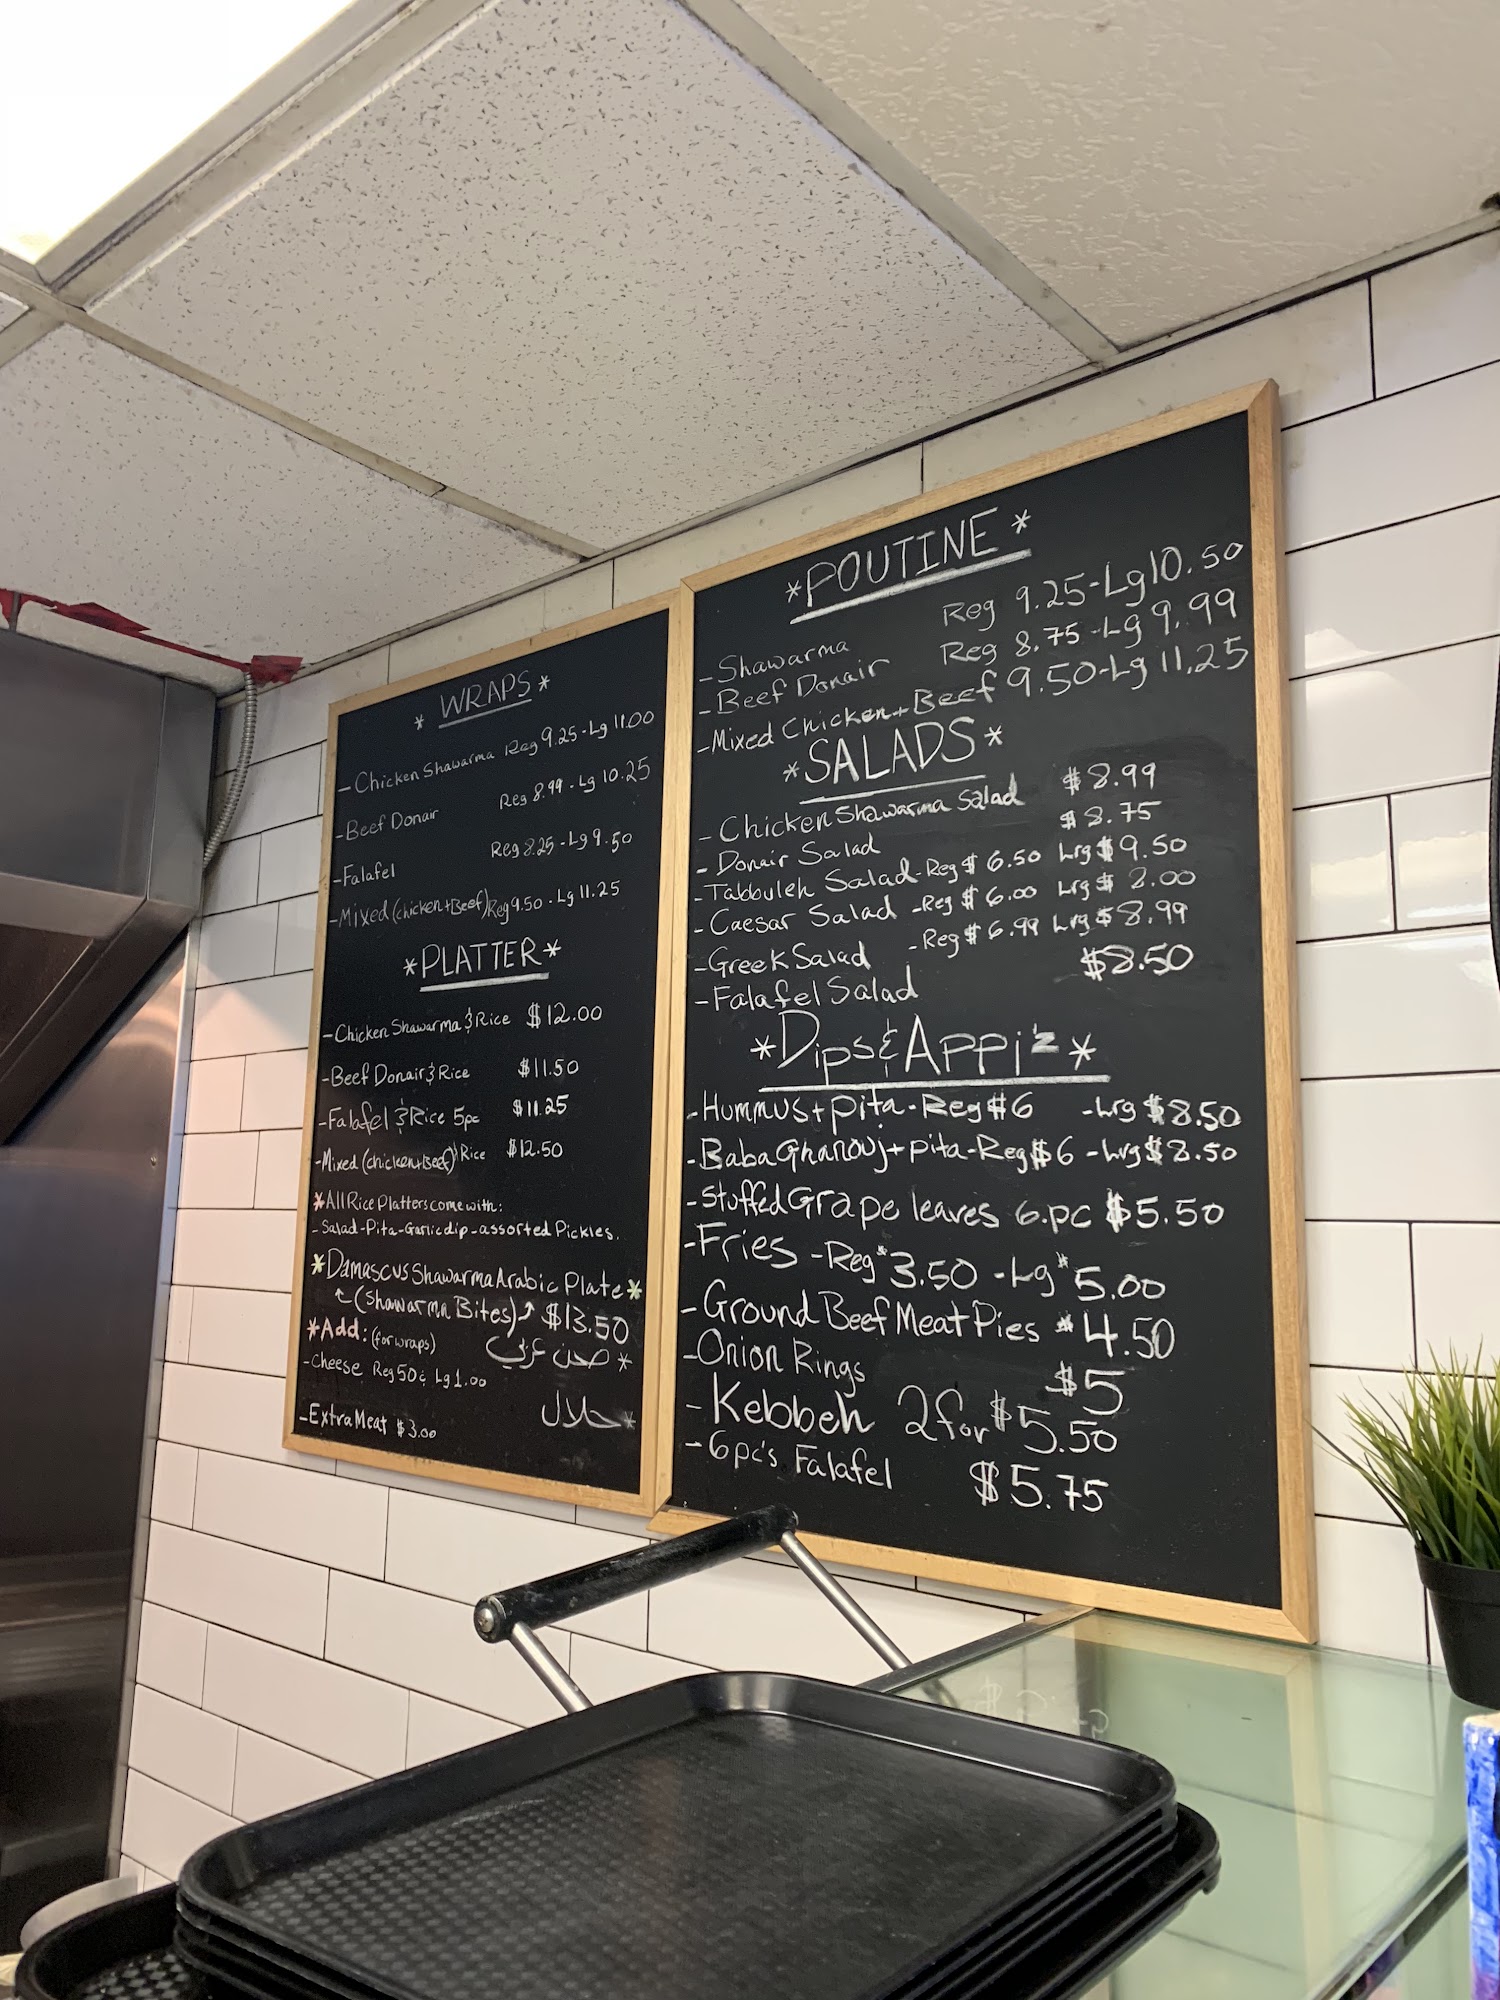 * WRAPS *
- Chicken Shawarma Reg 9.25 - Lg 11.00
- Beef Donair Reg 8.99 - Lg 10.25
- Falafel Reg 8.25 - Lg 9.50
- Mixed (chicken + Beef) Reg 9.50 - Lg 11.25
* PLATTER *
- Chicken Shawarma & Rice $12.00
- Beef Donair & Rice $11.50
- Falafel & Rice 5pc $11.25
- Mixed (chicken + Beef) Rice $12.50
* All Rice Platters come with:
- Salad - Pita - Garlic dip - assorted Pickles.
* Damascus Shawarma Arabic Plate *
(Shawarma Bites) $13.50
* Add: (for wraps)
* صحن عربي
- Cheese Reg 50¢ Lg 1.00
* حلال
- Extra Meat $3.00
* POUTINE *
- Shawarma Reg 9.25 - Lg 10.50
- Beef Donair Reg 8.75 - Lg 9.99
- Mixed Chicken + Beef 9.50 - Lg 11.25
* SALADS *
- Chicken Shawarma Salad $8.99
- Donair Salad $8.75
- Tabbuleh Salad - Reg $6.50 Lrg $9.50
- Caesar Salad - Reg $6.00 Lrg $8.00
- Greek Salad - Reg $6.99 Lrg $8.99
- Falafel Salad $8.50
* Dips & Appi'z *
- Hummus + pita - Reg $6 - Lrg $8.50
- Baba Ghanouj + pita - Reg $6 - Lrg $8.50
- Stuffed Grape leaves 6.pc $5.50
- Fries - Reg $3.50 - Lg $5.00
- Ground Beef Meat Pies $4.50
- Onion Rings $5
- Kebbeh 2 for $5.50
- 6 pc's Falafel $5.75